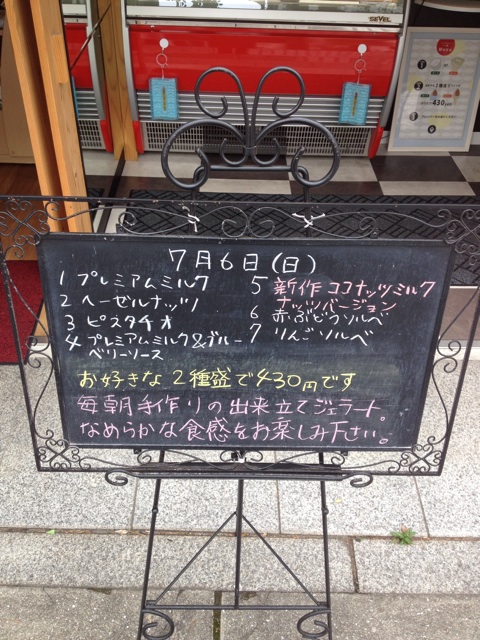 SEVEL
Menu
430円
7月6日(日)
1 プレミアムミルク
2 ヘーゼルナッツ
3 ピスタチオ
4 プレミアムミルク&ブルー
ベリーソース
5 新作 ココナッツミルク
ナッツバージョン
6 赤ぶどうソルベ
7 りんごソルベ
お好きな2種盛で430円です
毎朝手作りの出来立てジェラート。
なめらかな食感をお楽しみ下さい。